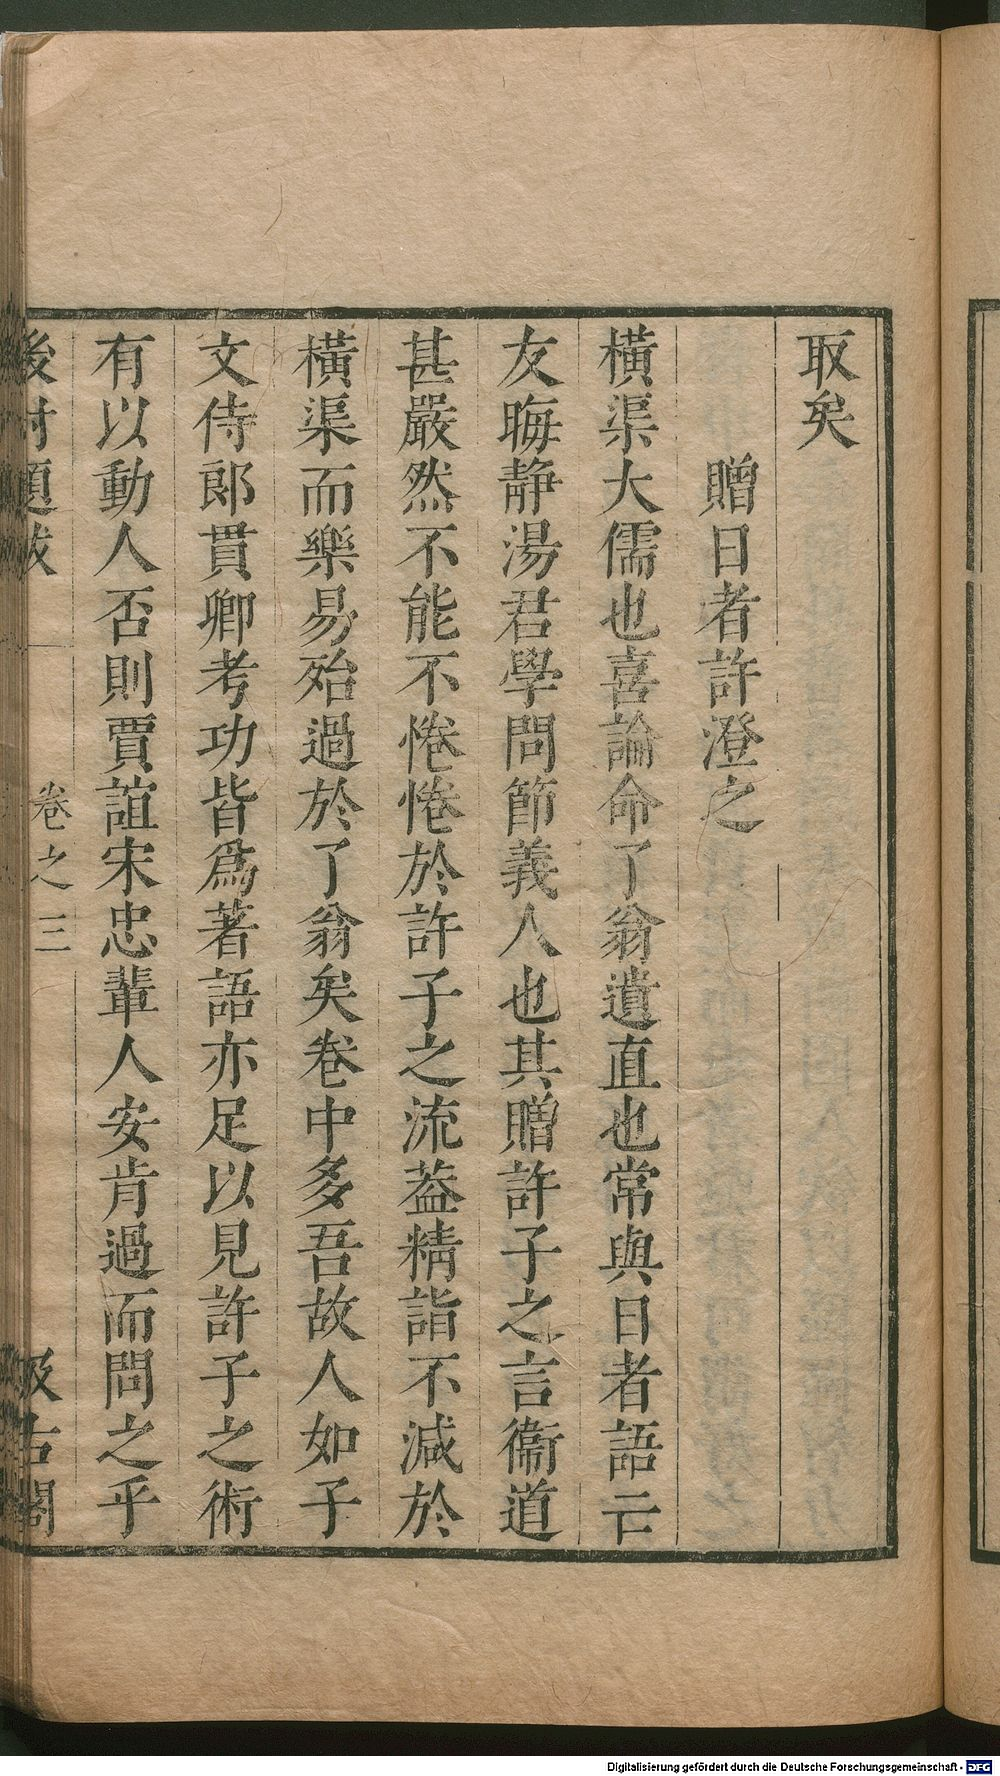 取矣
贈日者許澄之
橫渠大儒也喜論命了翁遺直也常與日者語云
友晦靜湯君學問節義人也其贈許子之言衞道
甚嚴然不能不惓惓於許子之流葢精詣不減於
橫渠而樂易殆過於了翁矣卷中多吾故人如子
文侍郎貫卿考功皆爲著語亦足以見許子之術
有以動人否則賈誼宋忠輩人安肯過而問之乎
後村題跋 卷之三 汲古閣
Digitalisierung gefördert durch die Deutsche Forschungsgemeinschaft - DFG